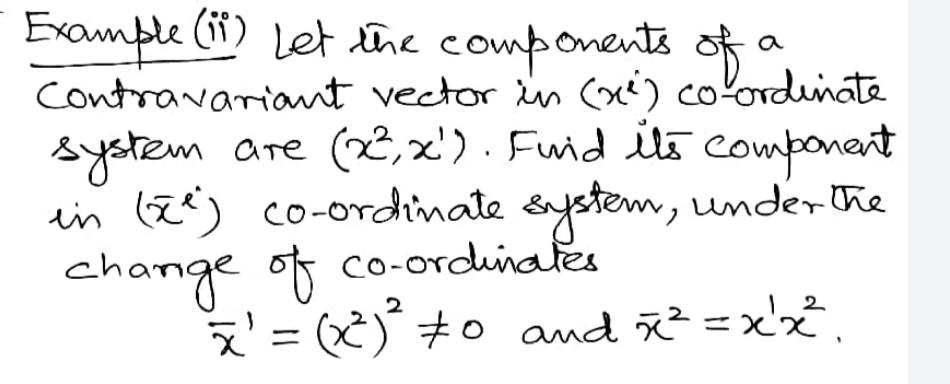 Example (ii) Let the components of a
contravariant vector in (xⁱ) co-ordinate
system are (x², x¹). Find its component
in (x̄ⁱ) co-ordinate system, under the
change of co-ordinates
x̄¹ = (x²)² ≠ 0 and x̄² = x¹x².